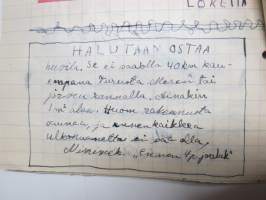 LOKETTA
HALUTAAN OSTAA
huvila. Se ei saa olla 40 km kau-
empana Turusta. Meren tai
järven rannalla. Ainakin
1 m² alaa. Huom rakennusta
ja ennen kaikkea
ulkohuonetta ei saa olla.
Nimimerk. "